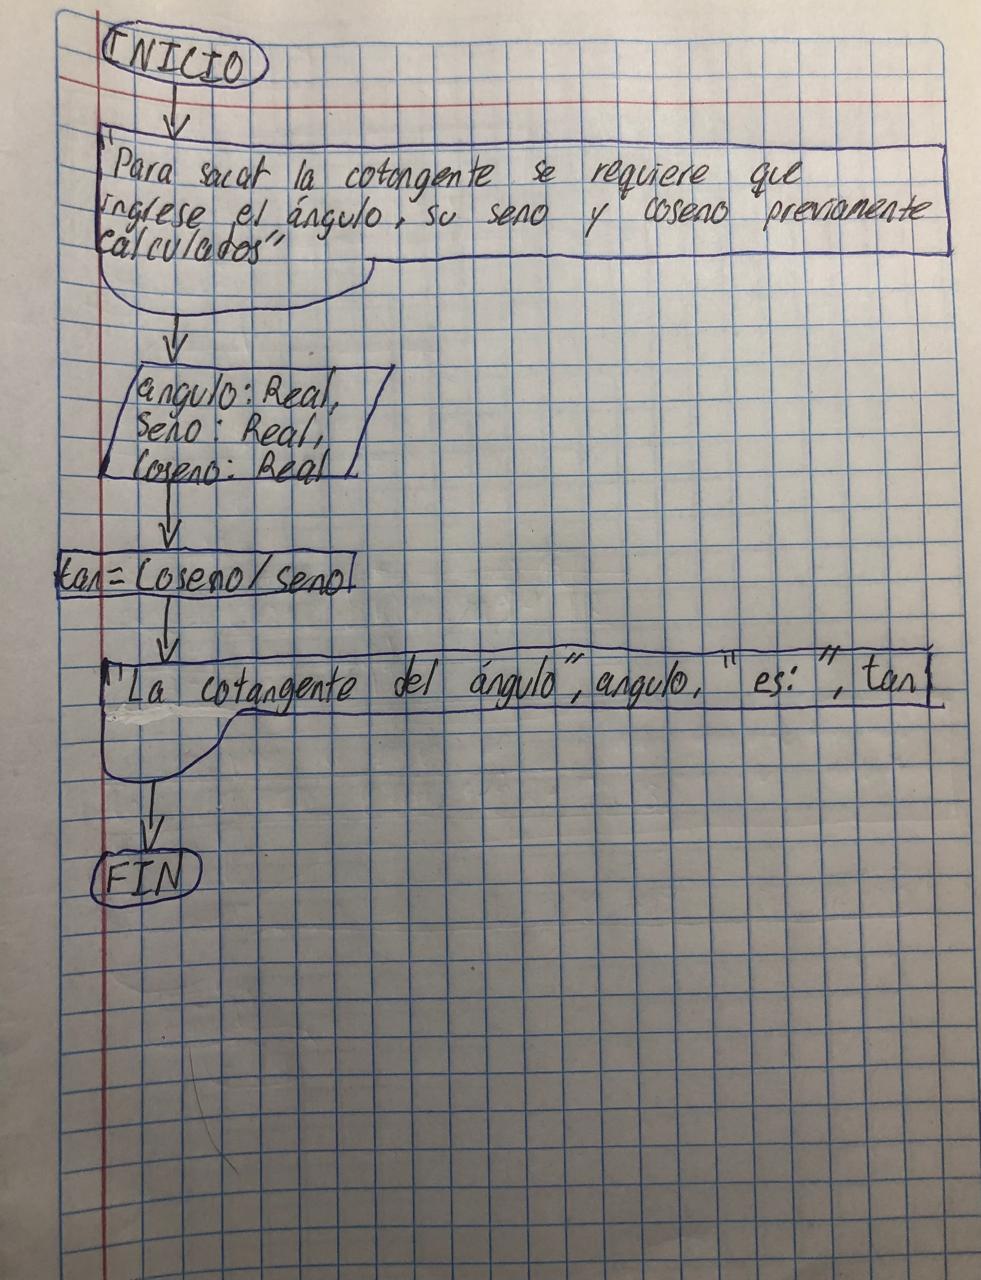 INICIO
"Para sacar la cotangente se requiere que
ingrese el ángulo, su seno y coseno previamente
calculados"
angulo: Real,
seno: Real,
Coseno: Real
tan = Coseno/seno
"La cotangente del ángulo", angulo, " es: ", tan
FIN